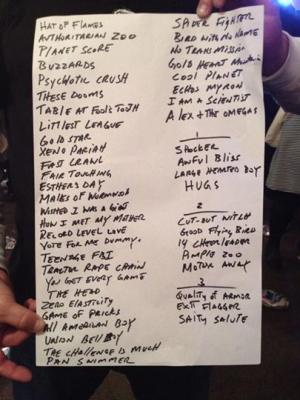 HAT OF FLAMES
AUTHORITARIAN ZOO
PLANET SCORE
BUZZARDS
PSYCHOTIC CRUSH
THESE DOOMS
TABLE AT FOOL'S TOOTH
LITTLEST LEAGUE
GOLD STAR
XENO PARIAH
FAST CRAWL
FAIR TOUCHING
ESTHER'S DAY
MALKS OF WORMWOOD
WISHED I WAS A GIANT
HOW I MET MY MOTHER
RECORD LEVEL LOVE
VOTE FOR ME DUMMY
TEENAGE FBI
TRACTOR RAPE CHAIN
YOU GET EVERY GAME
THE HEAD
ZERO ELASTICITY
GAME OF PRICKS
All AMERICAN BOY
UNION BELL BOY
THE CHALLENGE IS MUCH
PAN SWIMMER
SPIDER FIGHTER
BIRD WITH NO NAME
NO TRANSMISSION
GOLD HEART MOUNTAIN
COOL PLANET
ECHOS MYRON
I AM A SCIENTIST
ALEX + THE OMEGAS
1
SHOCKER
AWFUL BLISS
LARGE HEARTED BOY
HUGS
2
CUT-OUT WITCH
GOOD FLYING BIRD
14 CHEERLEADER
PIMPLE ZOO
MOTOR AWAY
3
QUALITY OF ARMOR
EXIT FLAGGER
SALTY SALUTE